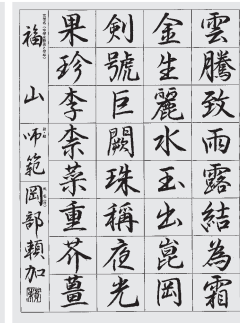 雲騰致雨露結為霜
金生麗水玉出崑岡
劍號巨闕珠稱夜光
果珍李柰菜重芥薑
福山師範岡部賴加